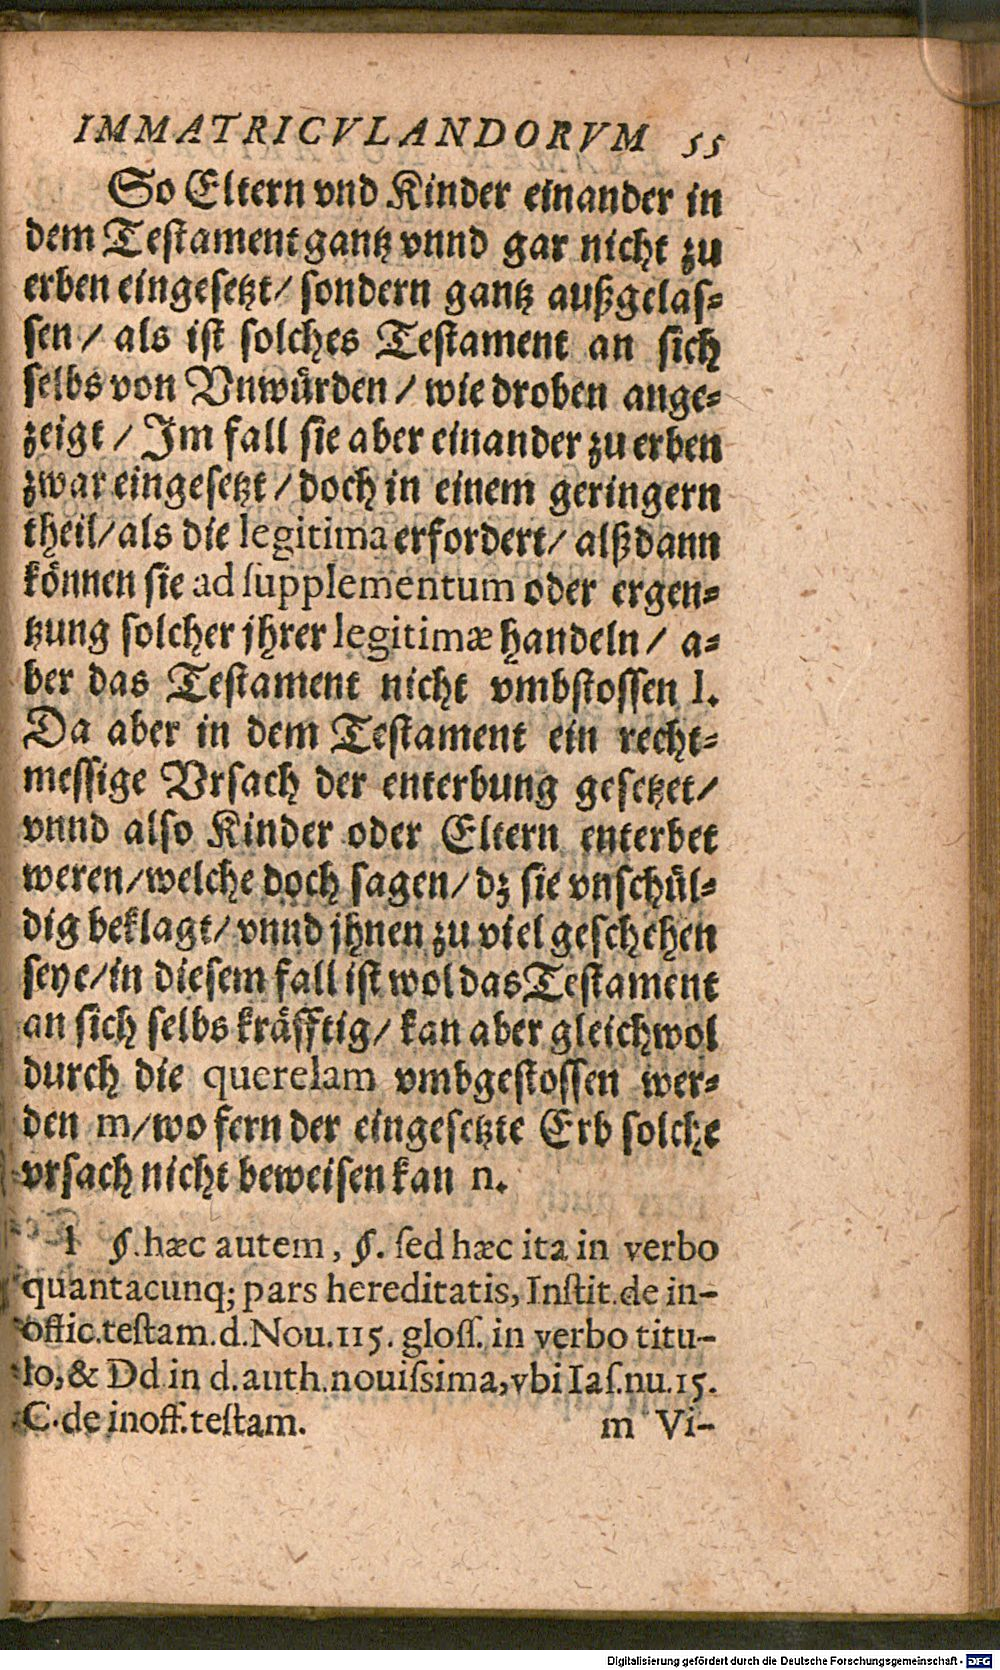 IMMATRICVLANDORVM 55
So Eltern vnd Kinder einander in
dem Testament gantz vnnd gar nicht zu
erben eingesetzt/ sondern gantz außgelas-
sen/ als ist solches Testament an sich
selbs von Vnwürden/ wie droben ange-
zeigt/ Im fall sie aber einander zu erben
zwar eingesetzt/ doch in einem geringern
theil/ als die legitima erfordert/ alßdann
können sie ad ſupplementum oder ergen-
tzung solcher jhrer legitimæ handeln/ a-
ber das Testament nicht vmbstossen l.
Da aber in dem Testament ein recht-
messige Vrsach der enterbung gesetzet/
vnnd also Kinder oder Eltern enterbet
weren/ welche doch sagen/ dz sie vnschül-
dig beklagt/ vnnd jhnen zu viel geschehen
seye/ in diesem fall ist wol das Testament
an sich selbs kräfftig/ kan aber gleichwol
durch die querelam vmbgestossen wer-
den m/ wo fern der eingesetzte Erb solche
vrsach nicht beweisen kan n.
l §. hæc autem, §. ſed hæc ita in verbo
quantacunq; pars hereditatis, Inſtit. de in-
offic. teſtam. d. Nou. 115. gloſſ. in verbo titu-
lo, & Dd in d. auth. nouiſsima, vbi Iaſ. nu. 15.
C. de inoff. teſtam. m Vi-
Digitalisierung gefördert durch die Deutsche Forschungsgemeinschaft - DFG